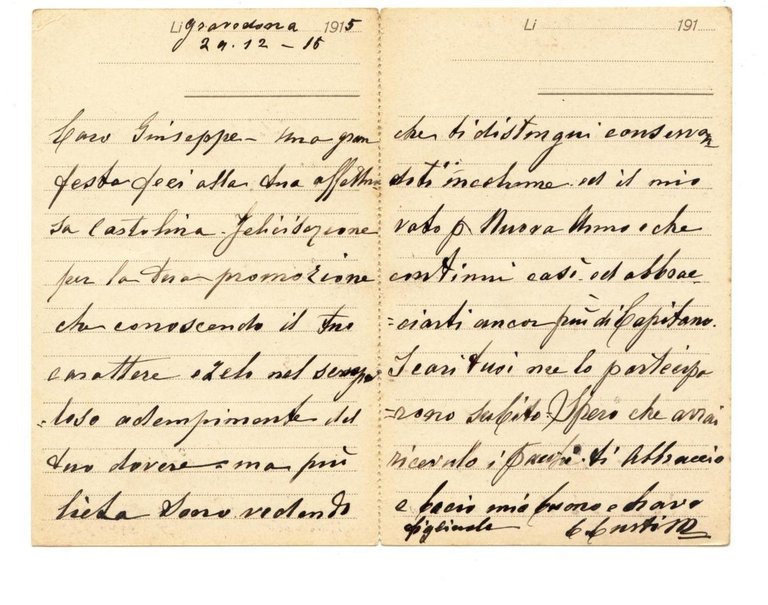 Li Gravedona 1915
29.12-15
Caro Giuseppe - una gran
festa feci alla tua affettuo
sa Cartolina. Felicitazione
per la tua promozione
che conoscendo il tuo
carattere e zelo nel scrupo
=loso adempimento del
tuo dovere = ma più
lieta sono vedendo
Li 191
che ti distingui conservan
doti incolume ed il mio
voto p Nuovo Anno e che
continui così ed abbrac
=ciarti ancor più di Capitano.
I cari tuoi me lo partecipa
=rono subito - Spero che avrai
ricevuto i ti Abbraccio
e bacio mio buono e bravo
figliuolo